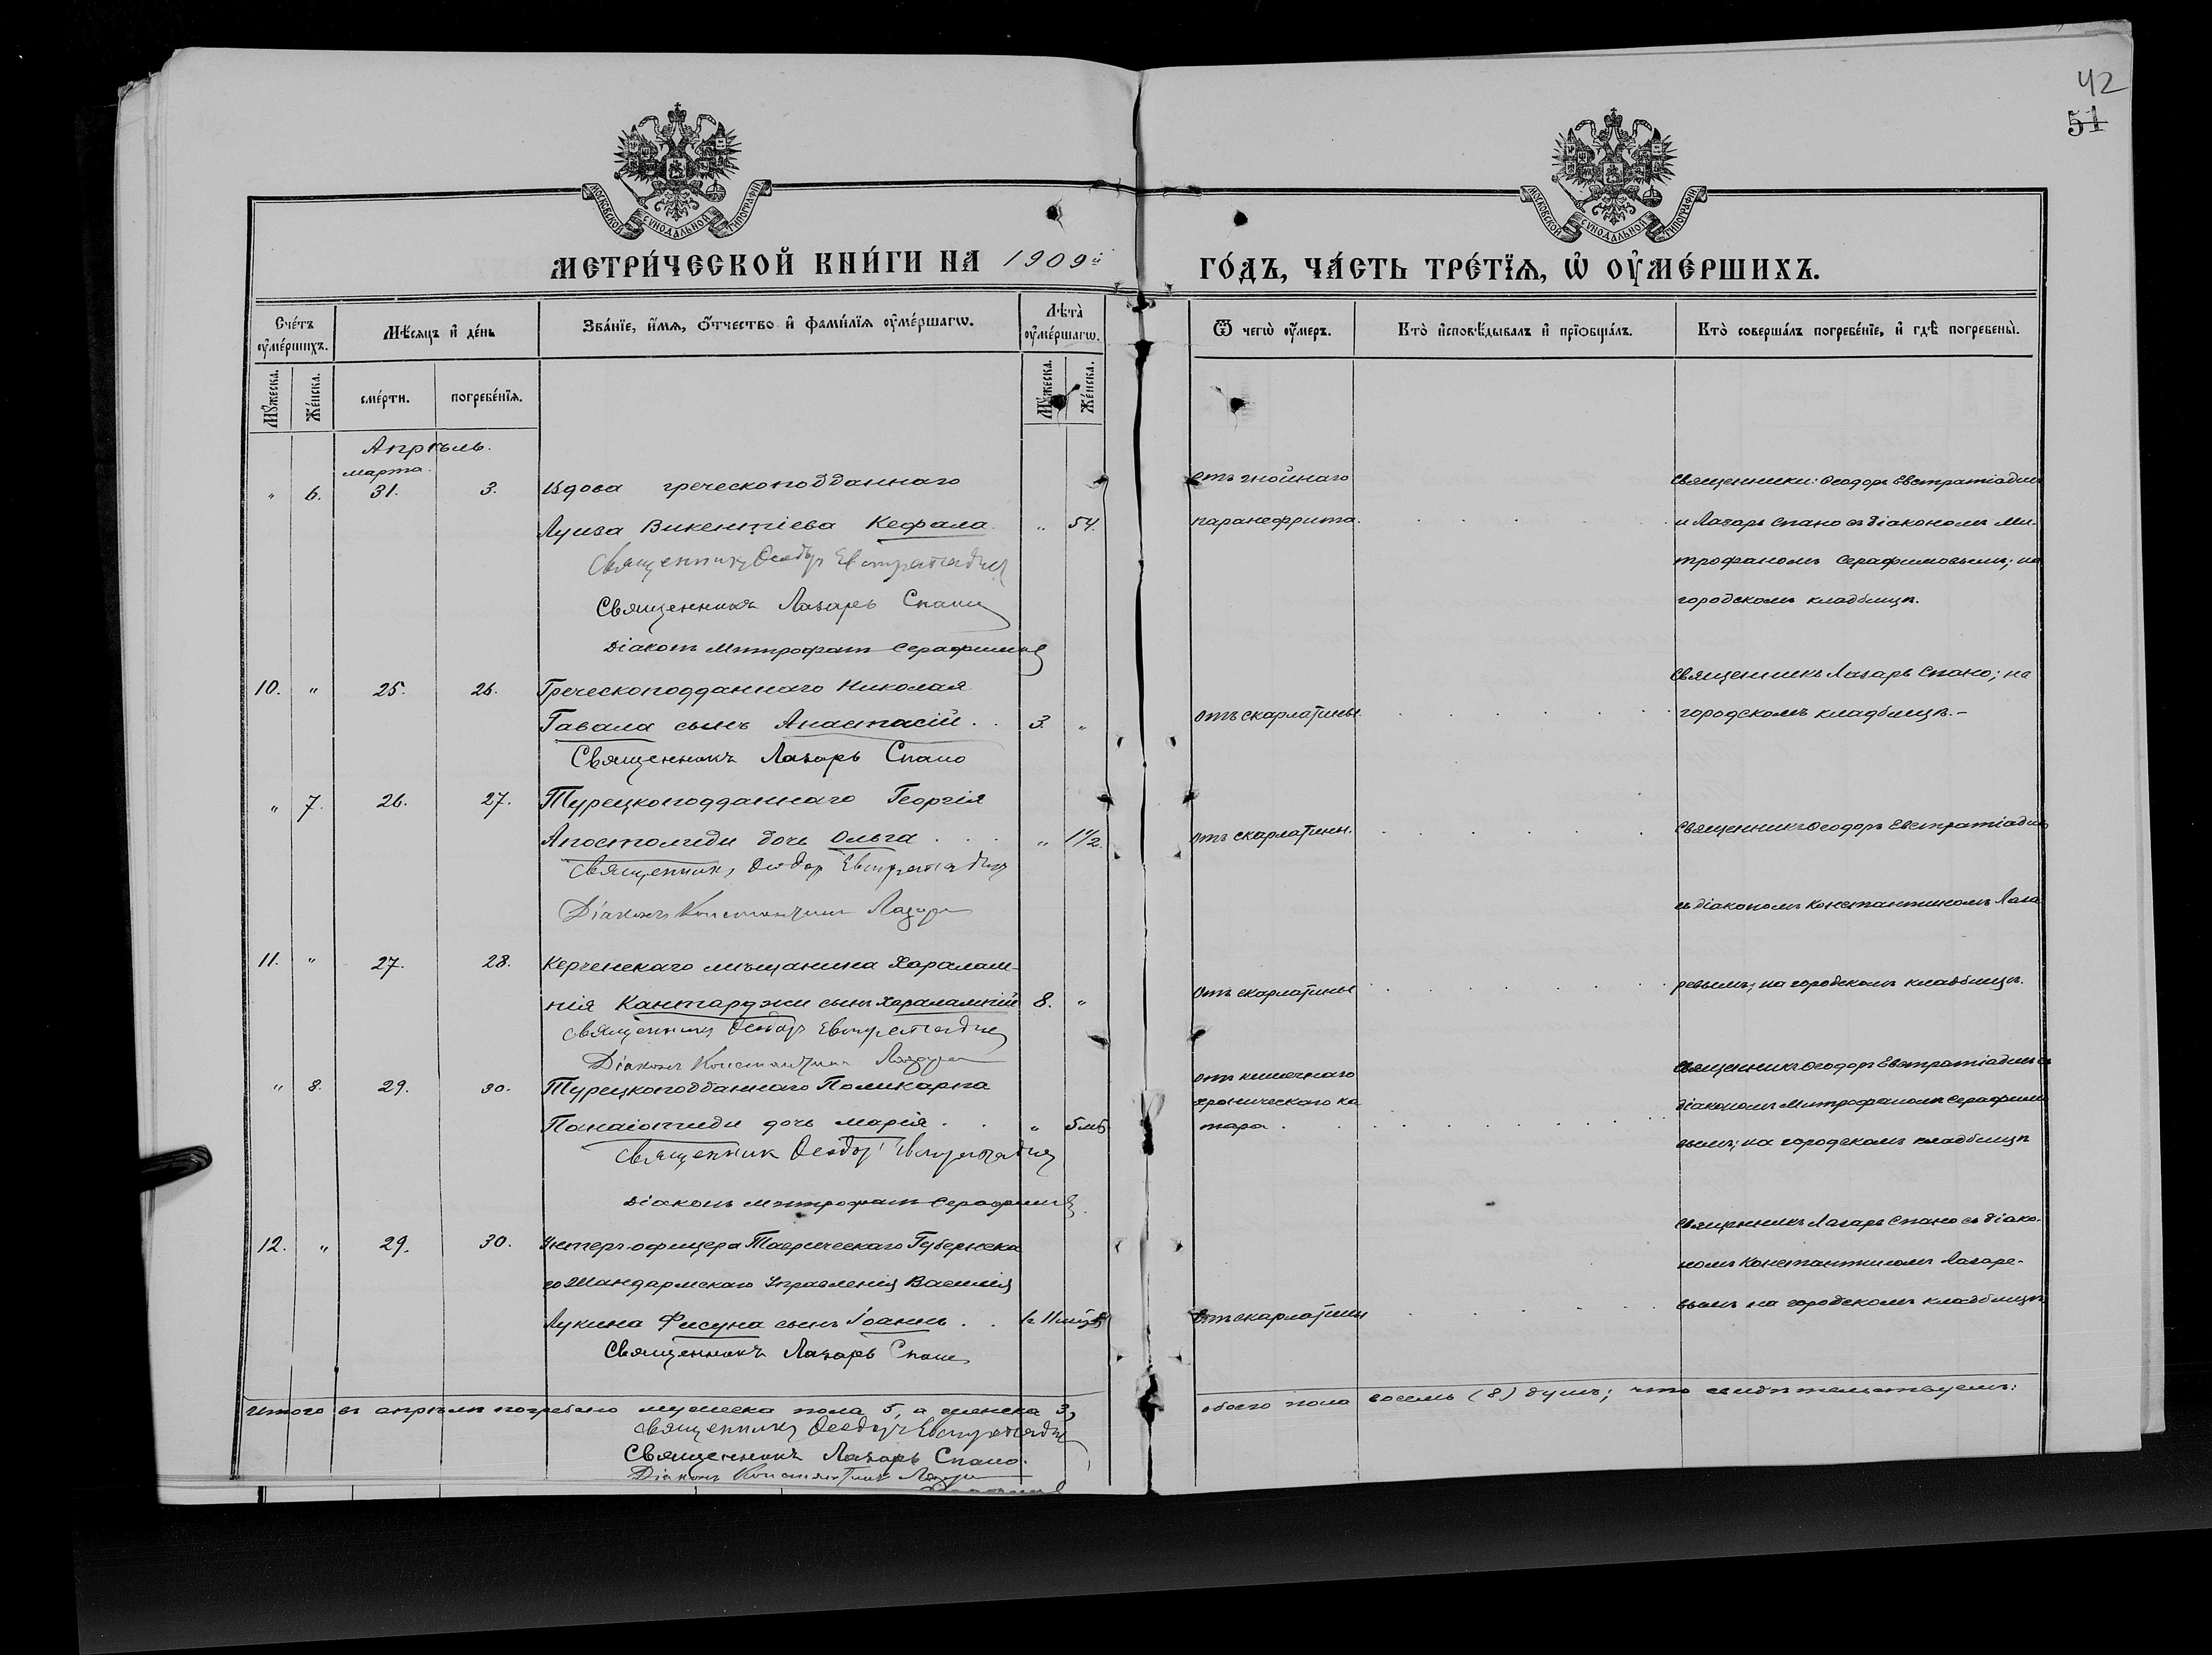 42
51
МОСКОВСКОЙ СѴНОДАЛЬНОЙ ТИПОГРАФІИ
МОСКОВСКОЙ СѴНОДАЛЬНОЙ ТИПОГРАФІИ
МЕТРИ́ЧЕСКОЙ КНИ́ГИ НА 1909й ГО́ДЪ, ЧА́СТЬ ТРЕ́ТЇѦ, Ѡ ОУ҆МЕ́РШИХЪ.
Сче́тъ оу҆ме́ршихъ.
Мѣ́сяцъ и҆ де́нь
Зва́нїе, и҆́мѧ, ѻ҆́тчество и҆ фами́лїѧ оу҆ме́ршагѡ.
Лѣта̀ оу҆ме́ршагѡ.
Ѿ чегѡ̀ оу҆́меръ.
Кто̀ и҆сповѣ́дывалъ и҆ прїѡбща́лъ.
Кто̀ соверша́лъ погребе́нїе, и҆ гдѣ̀ погребены̀.
Мꙋ́жеска.
Же́нска.
сме́рти.
погребе́нїѧ.
Мꙋ́жеска.
Же́нска.
Апрѣль.
марта.
" 6. 31. 3. Вдова греческоподданнаго
Луиза Викентіева Кефала " 54.
Священникъ Ѳеодоръ Евстратіадисъ
Священникъ Лазарь Спано
Діаконъ Митрофанъ Серафимовъ
отъ гнойнаго
паранефрита.
Священники: Ѳеодоръ Евстратіадисъ
и Лазарь Спано съ діакономъ Ми-
трофаномъ Серафимовымъ; на
городскомъ кладбищѣ.
10. " 25. 26. Греческоподданнаго Николая
Гавала сынъ Анастасій. . 3. "
Священникъ Лазарь Спано
отъ скарлатины.
Священникъ Лазарь Спано; на
городскомъ кладбищѣ.-
" 7. 26. 27. Турецкоподданнаго Георгія
Апостолиди дочь Ольга . . . " 1 1/2.
Священникъ Ѳеодоръ Евстратіадисъ
Діаконъ Константинъ Лазаревъ
отъ скарлатины.
Священникъ Ѳеодоръ Евстратіадисъ
съ діакономъ Константиномъ Лаза
ревымъ; на городскомъ кладбищѣ.
11. " 27. 28. Керченскаго мѣщанина Харалам-
пія Кантарджи сынъ Харалампій 8. "
Священникъ Ѳеодоръ Евстратіадисъ
Діаконъ Константинъ Лазаревъ
Отъ скарлатины
" 8. 29. 30. Турецкоподданнаго Поликарпа
Панаіотиди дочь Марія . . " 5 мѣ.
Священникъ Ѳеодоръ Евстратіадисъ
Діаконъ Митрофанъ Серафимовъ
отъ кишечнаго
хроническаго ка
тара.
Священникъ Ѳеодоръ Евстратіадисъ съ
діакономъ Митрофаномъ Серафимо
вымъ; на городскомъ кладбищѣ
12. " 29. 30. Унтеръ-офицера Таврическаго Губернска
го Жандармскаго Управленія Василія
Лукина Фисуна сынъ Іоаннъ . .
Священникъ Лазарь Спано
Отъ скарлатины
Священникъ Лазарь Спано съ діако-
номъ Константиномъ Лазаре-
вымъ на городскомъ кладбищѣ
Итого въ апрѣлѣ погребено мужеска пола 5, а женска 3, обоего пола восемь (8) душъ; что свидѣтельствуемъ:
Священникъ Ѳеодоръ Евстратіадисъ
Священникъ Лазарь Спано.
Діаконъ Константинъ Лазаревъ